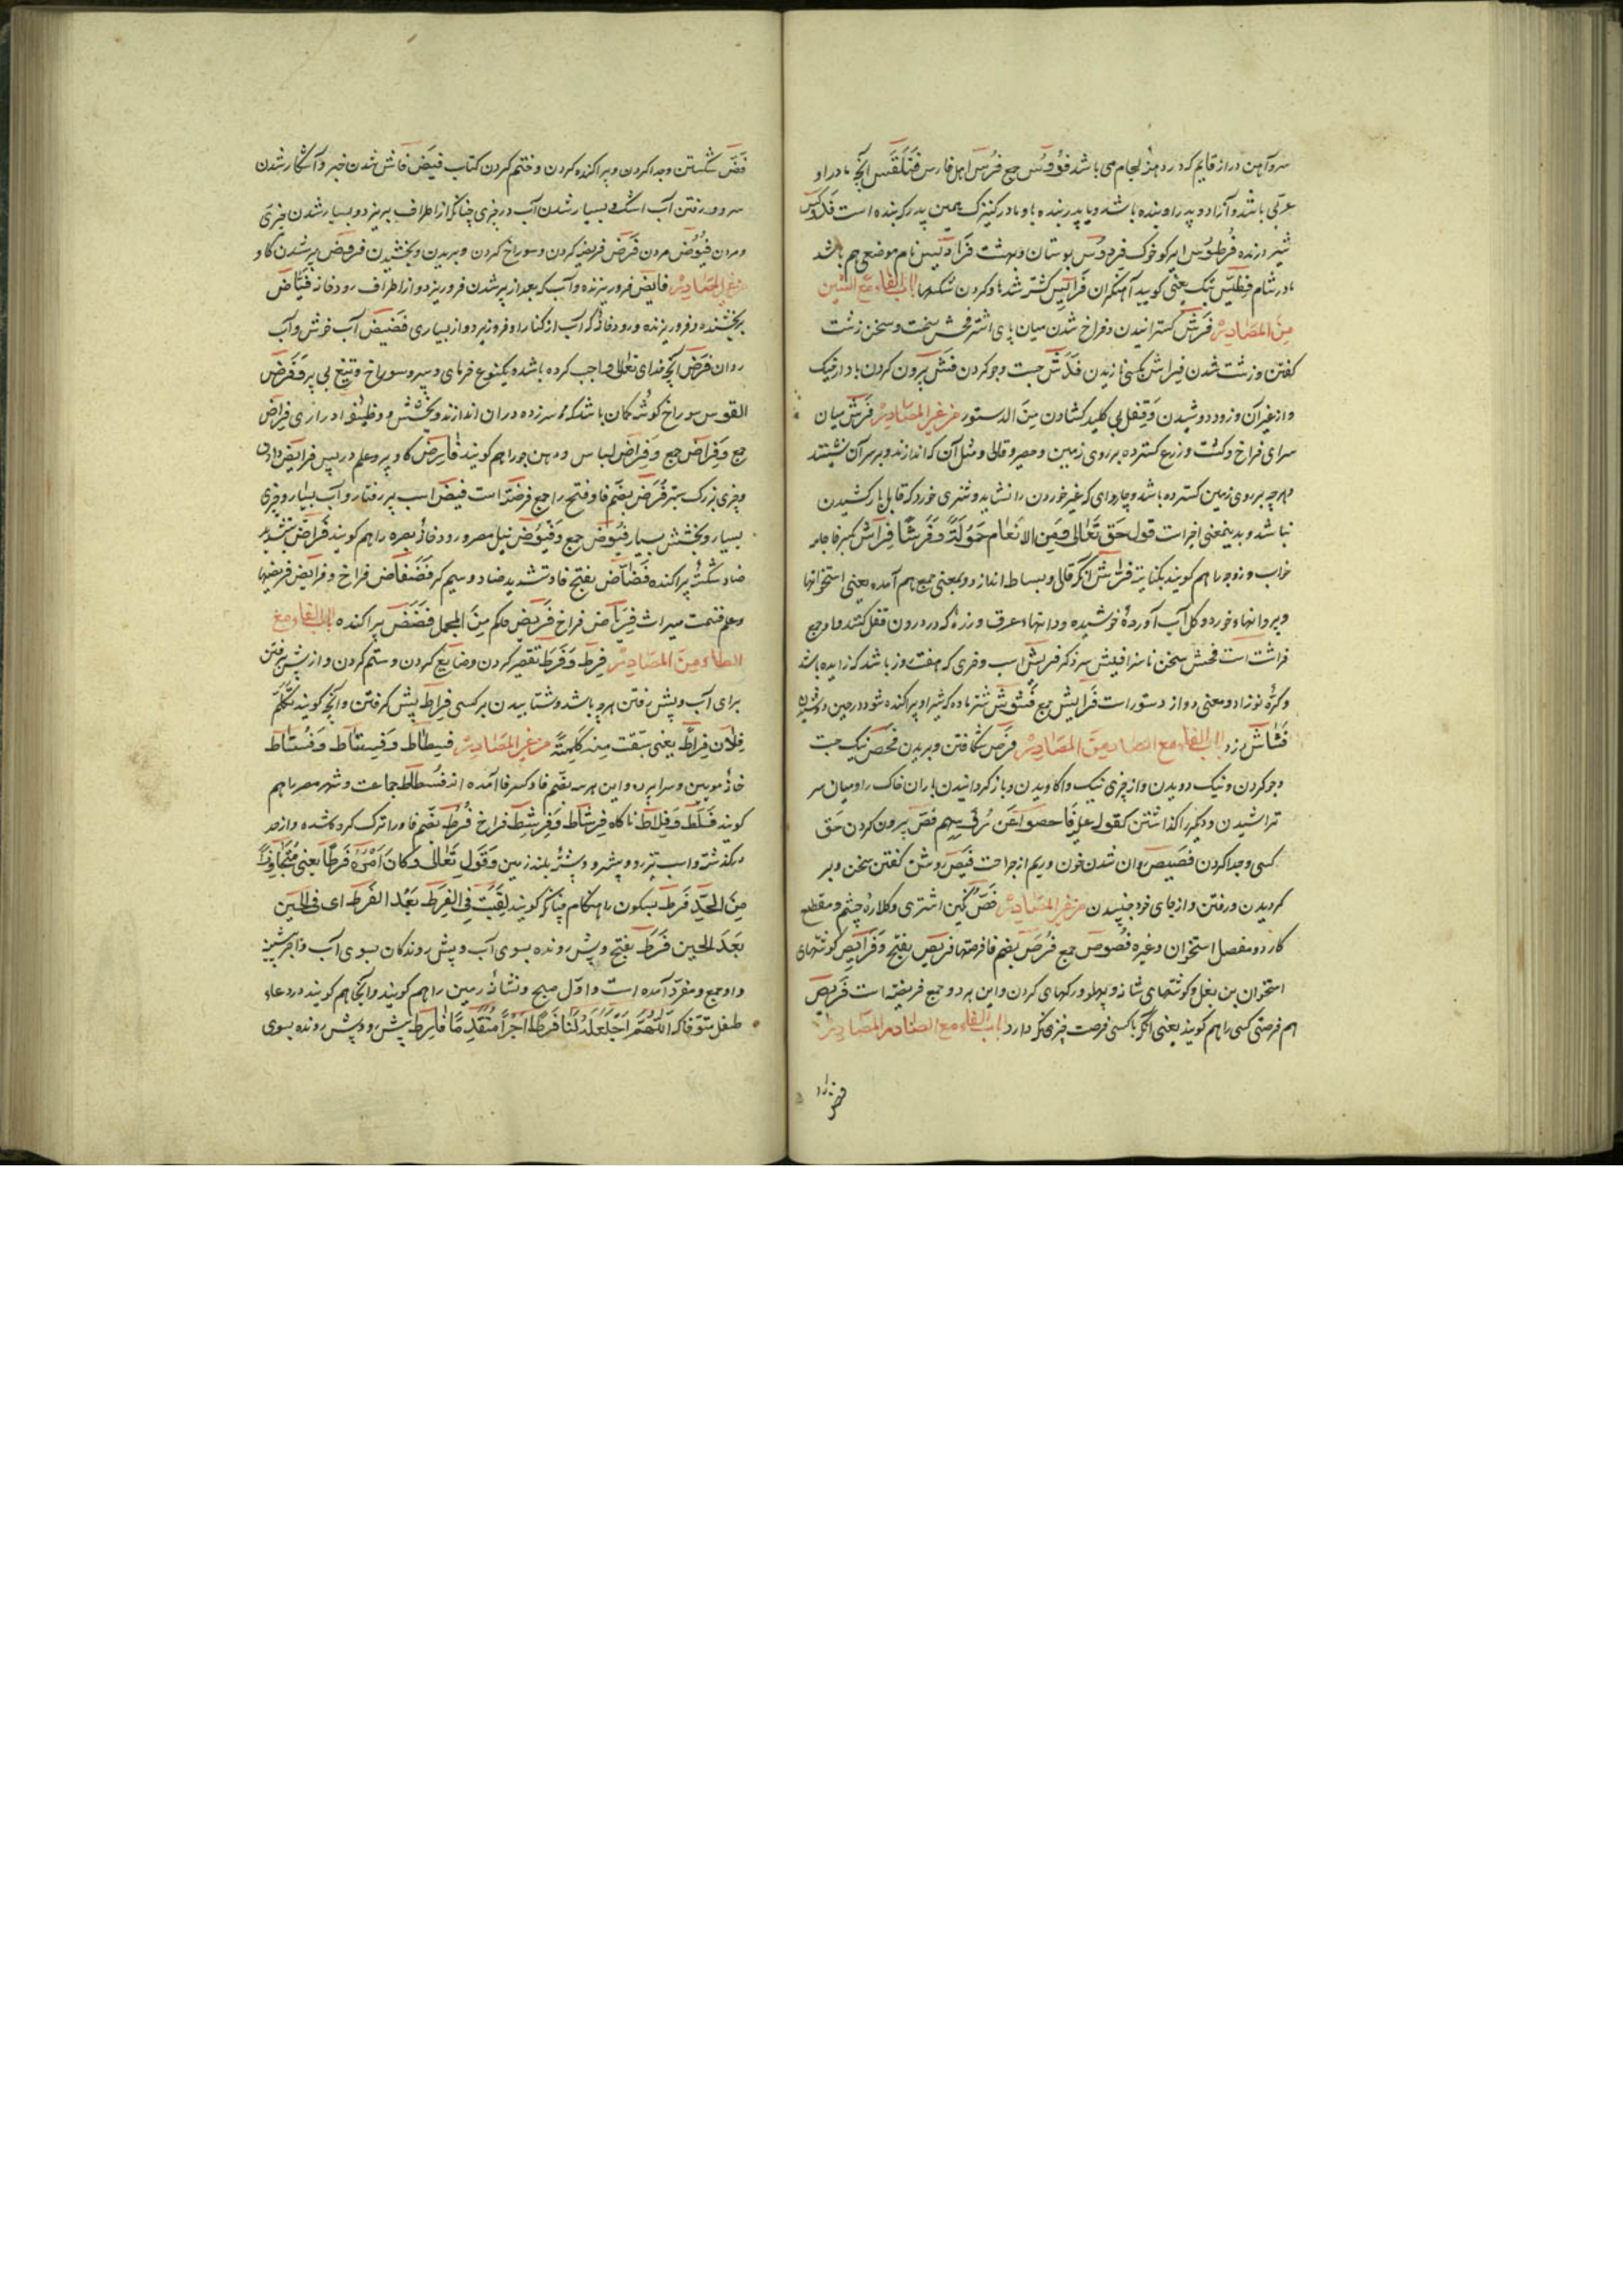 سر و آهن دراز قایم که در دهنهٔ لجام می باشد فؤوس جمع فرس اهل فارس فلنقس آنچه مادر او
عربی باشد و آزاد و پدر او بنده باشد و یا پدر بنده باو مادر کنیزک همین پدرکه بنده است فدوکس
شیر درنده فرطوس سر خوک فردوس بوستان و بهشت فرادیس نام موضعی هم باشد
در شام فطیس پتک یعنی کوبید آهنگران الباب الفاء مع الشین
من المصادر فرش گسترانیدن و فراخ شدن میان پای اشتر فحش سخت و سخن زشت
گفتن و زشت شدن جست و جو کردن فش بیرون کردن باد از خیک
و از غیر آن و زود دوشیدن و قفل بی کلید گشادن من الدستور من غیر المصادر فرش میان
سرای فراخ و کشت و زرع گسترده بر روی زمین و حصیر و قالی و مثل آن که اندازند و بر سر آن نشینند
و هرچه بر روی زمین گسترده باشد و چاروای که غیر خوردن را نشاید و شتری خورد که قابل بار کشیدن
نباشد و بدینمعنی اخیر است قول حق تعالی و من الانعام حمولة و فرشا فراش بکسر فا جامه
خواب و زوجه را هم گویند بکنایت فراش آنکه قالی و بساط اندازد و بمعنی جمع هم آمده یعنی استخوانها
و پروانها و خورد و گل آب آورده خوشیده و دانهاء عرق و رزه که در درون قفل کنند و او جمع
فراشت است فحش سخن ناسزا فیش سر ذکر فریش اسب و خری که هفت روز باشد که زاییده باشد
و کره نوزاد و معنی دو از دستور است فرایش جمع فشوش شتر ماده که شیر او پراکنده شود در حین دوشیدن
فشاش دزد الباب الفاء مع الصاد من المصادر فرص شکافتن و بریدن فحص نیک جست
و جو کردن و نیک دویدن و از چیزی نیک واکاویدن و باز گردانیدن باران خاک را و میان سر
تراشیدن و دیگر را گذاشتن کقوله علیه فاحصوا عن رؤسهم فص بیرون کردن حق
کسی و جدا کردن فصیص روان شدن خون و ریم از جراحت فیص روشن گفتن سخن و بر
گردیدن و رفتن و از جای خود جنبیدن من غیر المصادر فص نگین انگشتری و کلاره چشم و مقطع
کار و مفصل استخوان و غیره فصوص جمع فرص بضم فا فرصتها فریص بفتح و فرایص گوشتهای
استخوان بن بغل و گوشتهای شانه و پهلو و رگهای گردن و این هر دو جمع فریصه است فریص
هم فرصتی کسی را هم گویند یعنی آنکه با کسی فرصت چیزی نگه دارد الباب الفاء مع الضاد من المصادر
فض شکستن و جدا کردن و پراکنده کردن و ختم کردن کتاب فیض فاش شدن خبر و آشکار شدن
سر و رفتن آب اشک و بسیار شدن آب در چیزی چنانکه از اطراف بریزد و بسیار شدن چیزی
و مردن فیوض مردن فرض فریضه کردن و سوراخ کردن و بریدن و بخشیدن فروض پیر شدن گاو
من غیر المصادر فایض فرو ریزنده و آب که بعد از پر شدن فرو ریزد و از اطراف رودخانه فیاض
بخشنده و فرو ریزنده و رودخانه که آب از کنار او فرو ریزد از بسیاری فضیض آب خوش و آب
روان فرض آنچه خدای تعالی واجب کرده باشد و یکنوع خرمای و سپر و سوراخ و تیغ بی پر و فرض
القوس سوراخ گوشه کمان باشد که سر زه در آن اندازند و بخشش و وظیفه فراض
جمع و فراض جمع و فراض لباس و دهن جو را هم گویند فارض گاو پیر و معلم درپس فرایض دان
و چیزی بزرگ ستبر فرض بضم فا و فتح را جمع فرضة است فیض اسب پر رفتار و آب بسیار و چیزی
بسیار و بخشش بسیار فیوض جمع و فیوض نیل مصر و رودخانه بصره را هم گویند فراض بتشدید
ضاد شکسته پراکنده فضاض بفتح فا و تشدید ضاد و سیم فضفاض فراخ و فرایض فریضها
و علم قسمت میراث فرباض فراخ فریض حکم من المجمل فضض پراکنده الباب الفاء مع
الطاء من المصادر فرط و فرط تقصیر کردن و ضایع کردن و ستم کردن و از پیش رفتن
برای آب و پیش رفتن هرچه باشد و شتابیدن بر کسی فراط پیش گرفتن و آنچه گویند تکلم
فلان فراطا یعنی سبقت منه کلمة من غیر المصادر فسطاط و فستاط و فساط
خانه مویین و سراپرده و این هر سه بضم فا و کسر فا آمده اند فسطاط جماعت و شهر مصر را هم
گویند فلط و فلاط ناگاه فرشاط و فرشط فراخ فرط بضم فا و را ترک کرده شده و از حد
درگذشته و اسب تیز رو و پیشرو و پشته بلند زمین و قول تعالی و کان امره فرطا یعنی متجاوزا
من الحد فرط بسکون را هنگام چنانکه گویند لقیت فی الفرط بعد الفرط ای فی الحین
بعد الحین فرط بفتح و پیش رونده بسوی آب و پیش روندگان بسوی آب و اجر پیشینه
و او جمع و مفرد آمده است و اول صبح و نشانه زمین را هم گویند و آنجا هم گویند در دعاء
طفل متوفا که اللهم اجعله لنا فرطا اجرا متقدما فارط پیش رو و پیش رونده بسوی